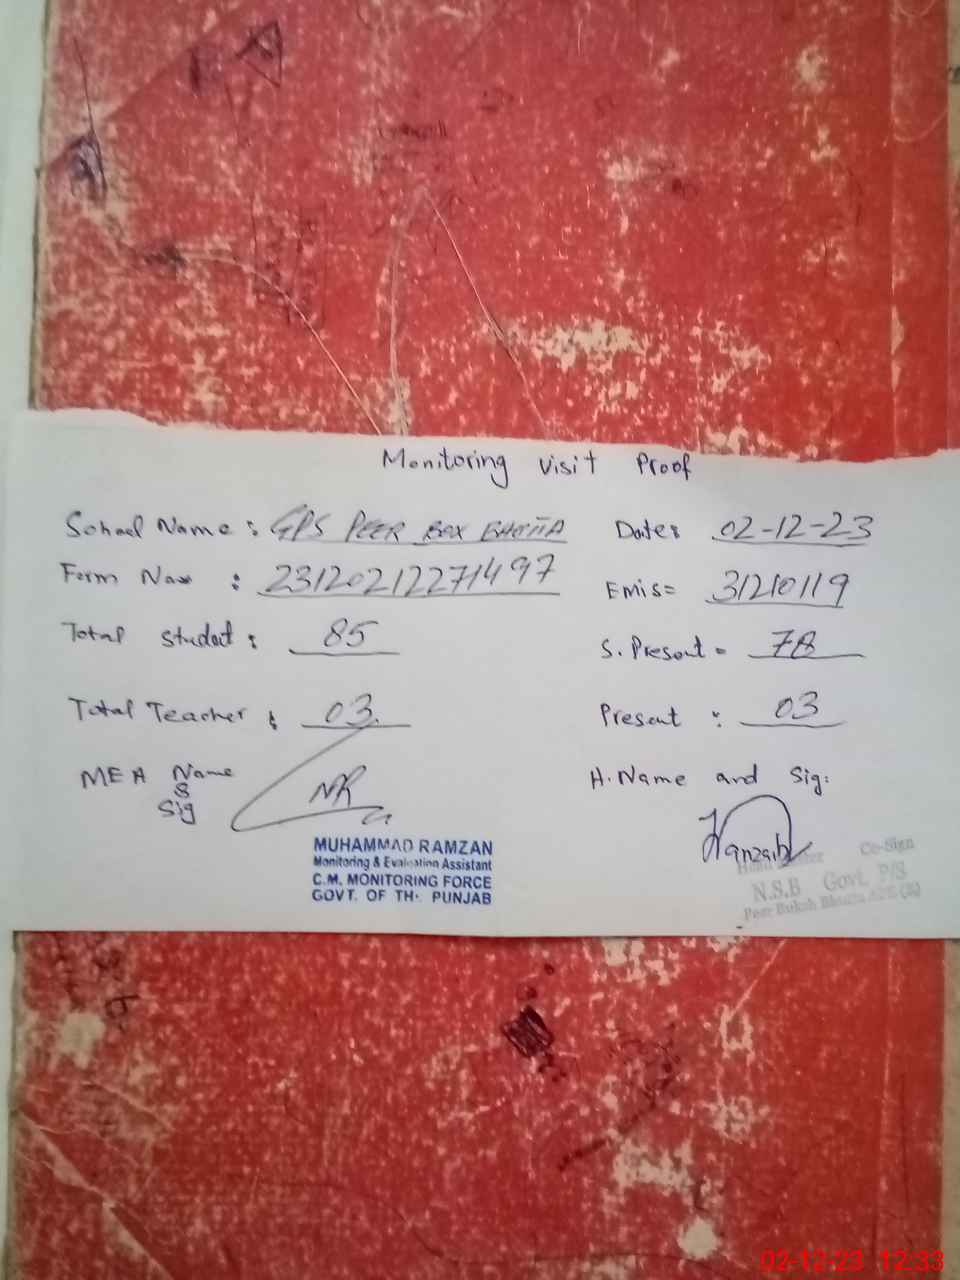 Monitoring visit Proof
School Name : GPS PEER BOX BHUTTA Date: 02-12-23
Form No : 231202122271497 Emis= 31210119
Total Student : 85 S. Present = 78
Total Teacher : 03 Present : 03
MEA Name & Sig NR H. Name and Sig:
MUHAMMAD RAMZAN
Monitoring & Evaluation Assistant
C.M. MONITORING FORCE
GOVT. OF THE PUNJAB
Head Master Co-Sign
N.S.B Govt. P/S
Peer Buksh Bhutta
02-12-23 12:33